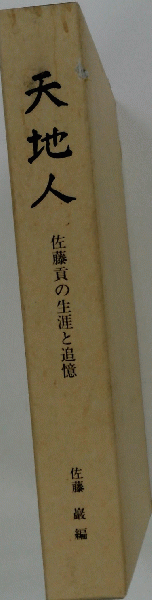 天地人
佐藤貢の生涯と追憶
佐藤 巌 編